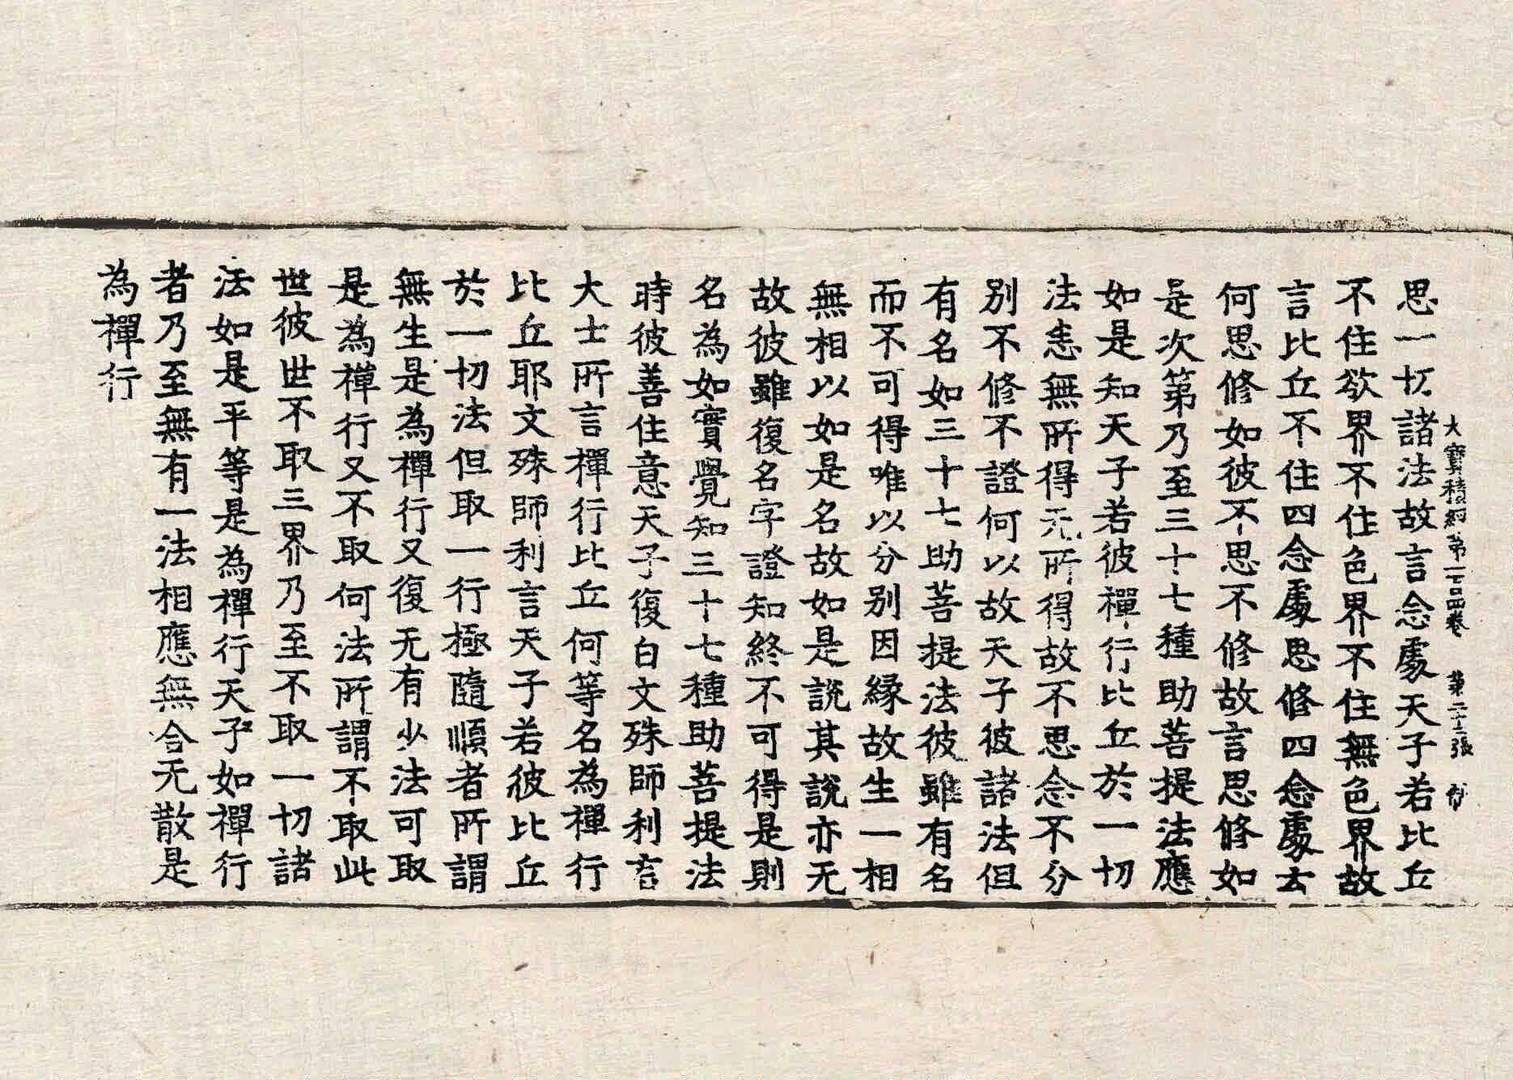 大寶積經第一百四卷 第二十三張
思一切諸法故言念處天子若比丘
不住欲界不住色界不住無色界故
言比丘不住四念處思修四念處云
何思修如彼不思不修故言思修如
是次第乃至三十七種助菩提法應
如是知天子若彼禪行比丘於一切
法恚無所得无所得故不思念不分
別不修不證何以故天子彼諸法但
有名如三十七助菩提法彼雖有名
而不可得唯以分別因緣故生一相
無相以如是名故如是說其說亦无
故彼雖復名字證知終不可得是則
名為如實覺知三十七種助菩提法
時彼善住意天子復白文殊師利言
大士所言禪行比丘何等名為禪行
比丘耶文殊師利言天子若彼比丘
於一切法但取一行極隨順者所謂
無生是為禪行又復无有少法可取
是為禪行又不取何法所謂不取此
世彼世不取三界乃至不取一切諸
法如是平等是為禪行天子如禪行
者乃至無有一法相應無合无散是
為禪行